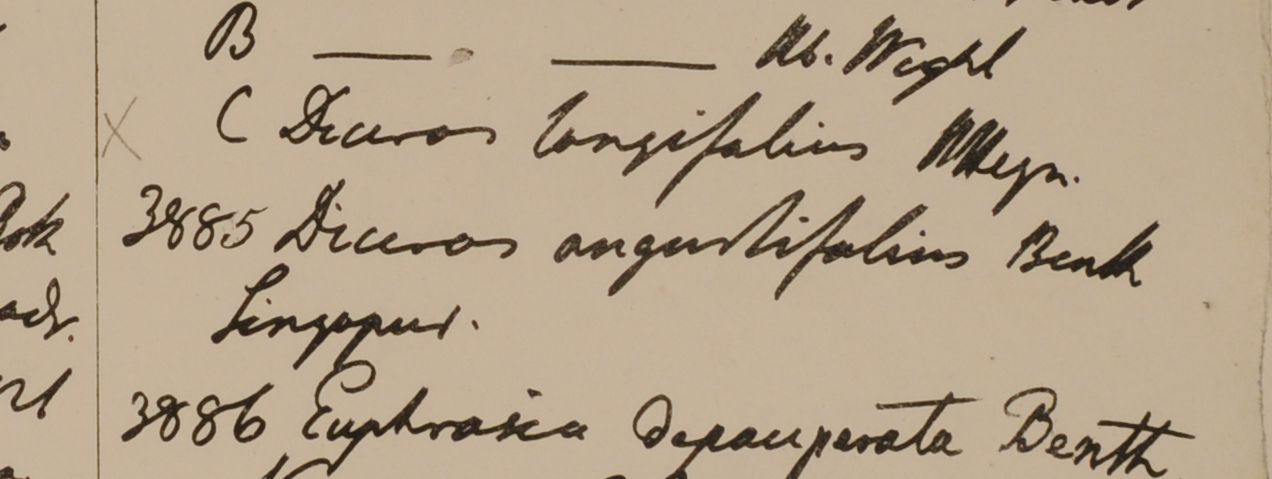 B — — Hb. Wight
C Diceros longifolius Heyn.
3885 Diceros angustifolius Benth
Singapur.
3886 Euphrasia depauperata Benth